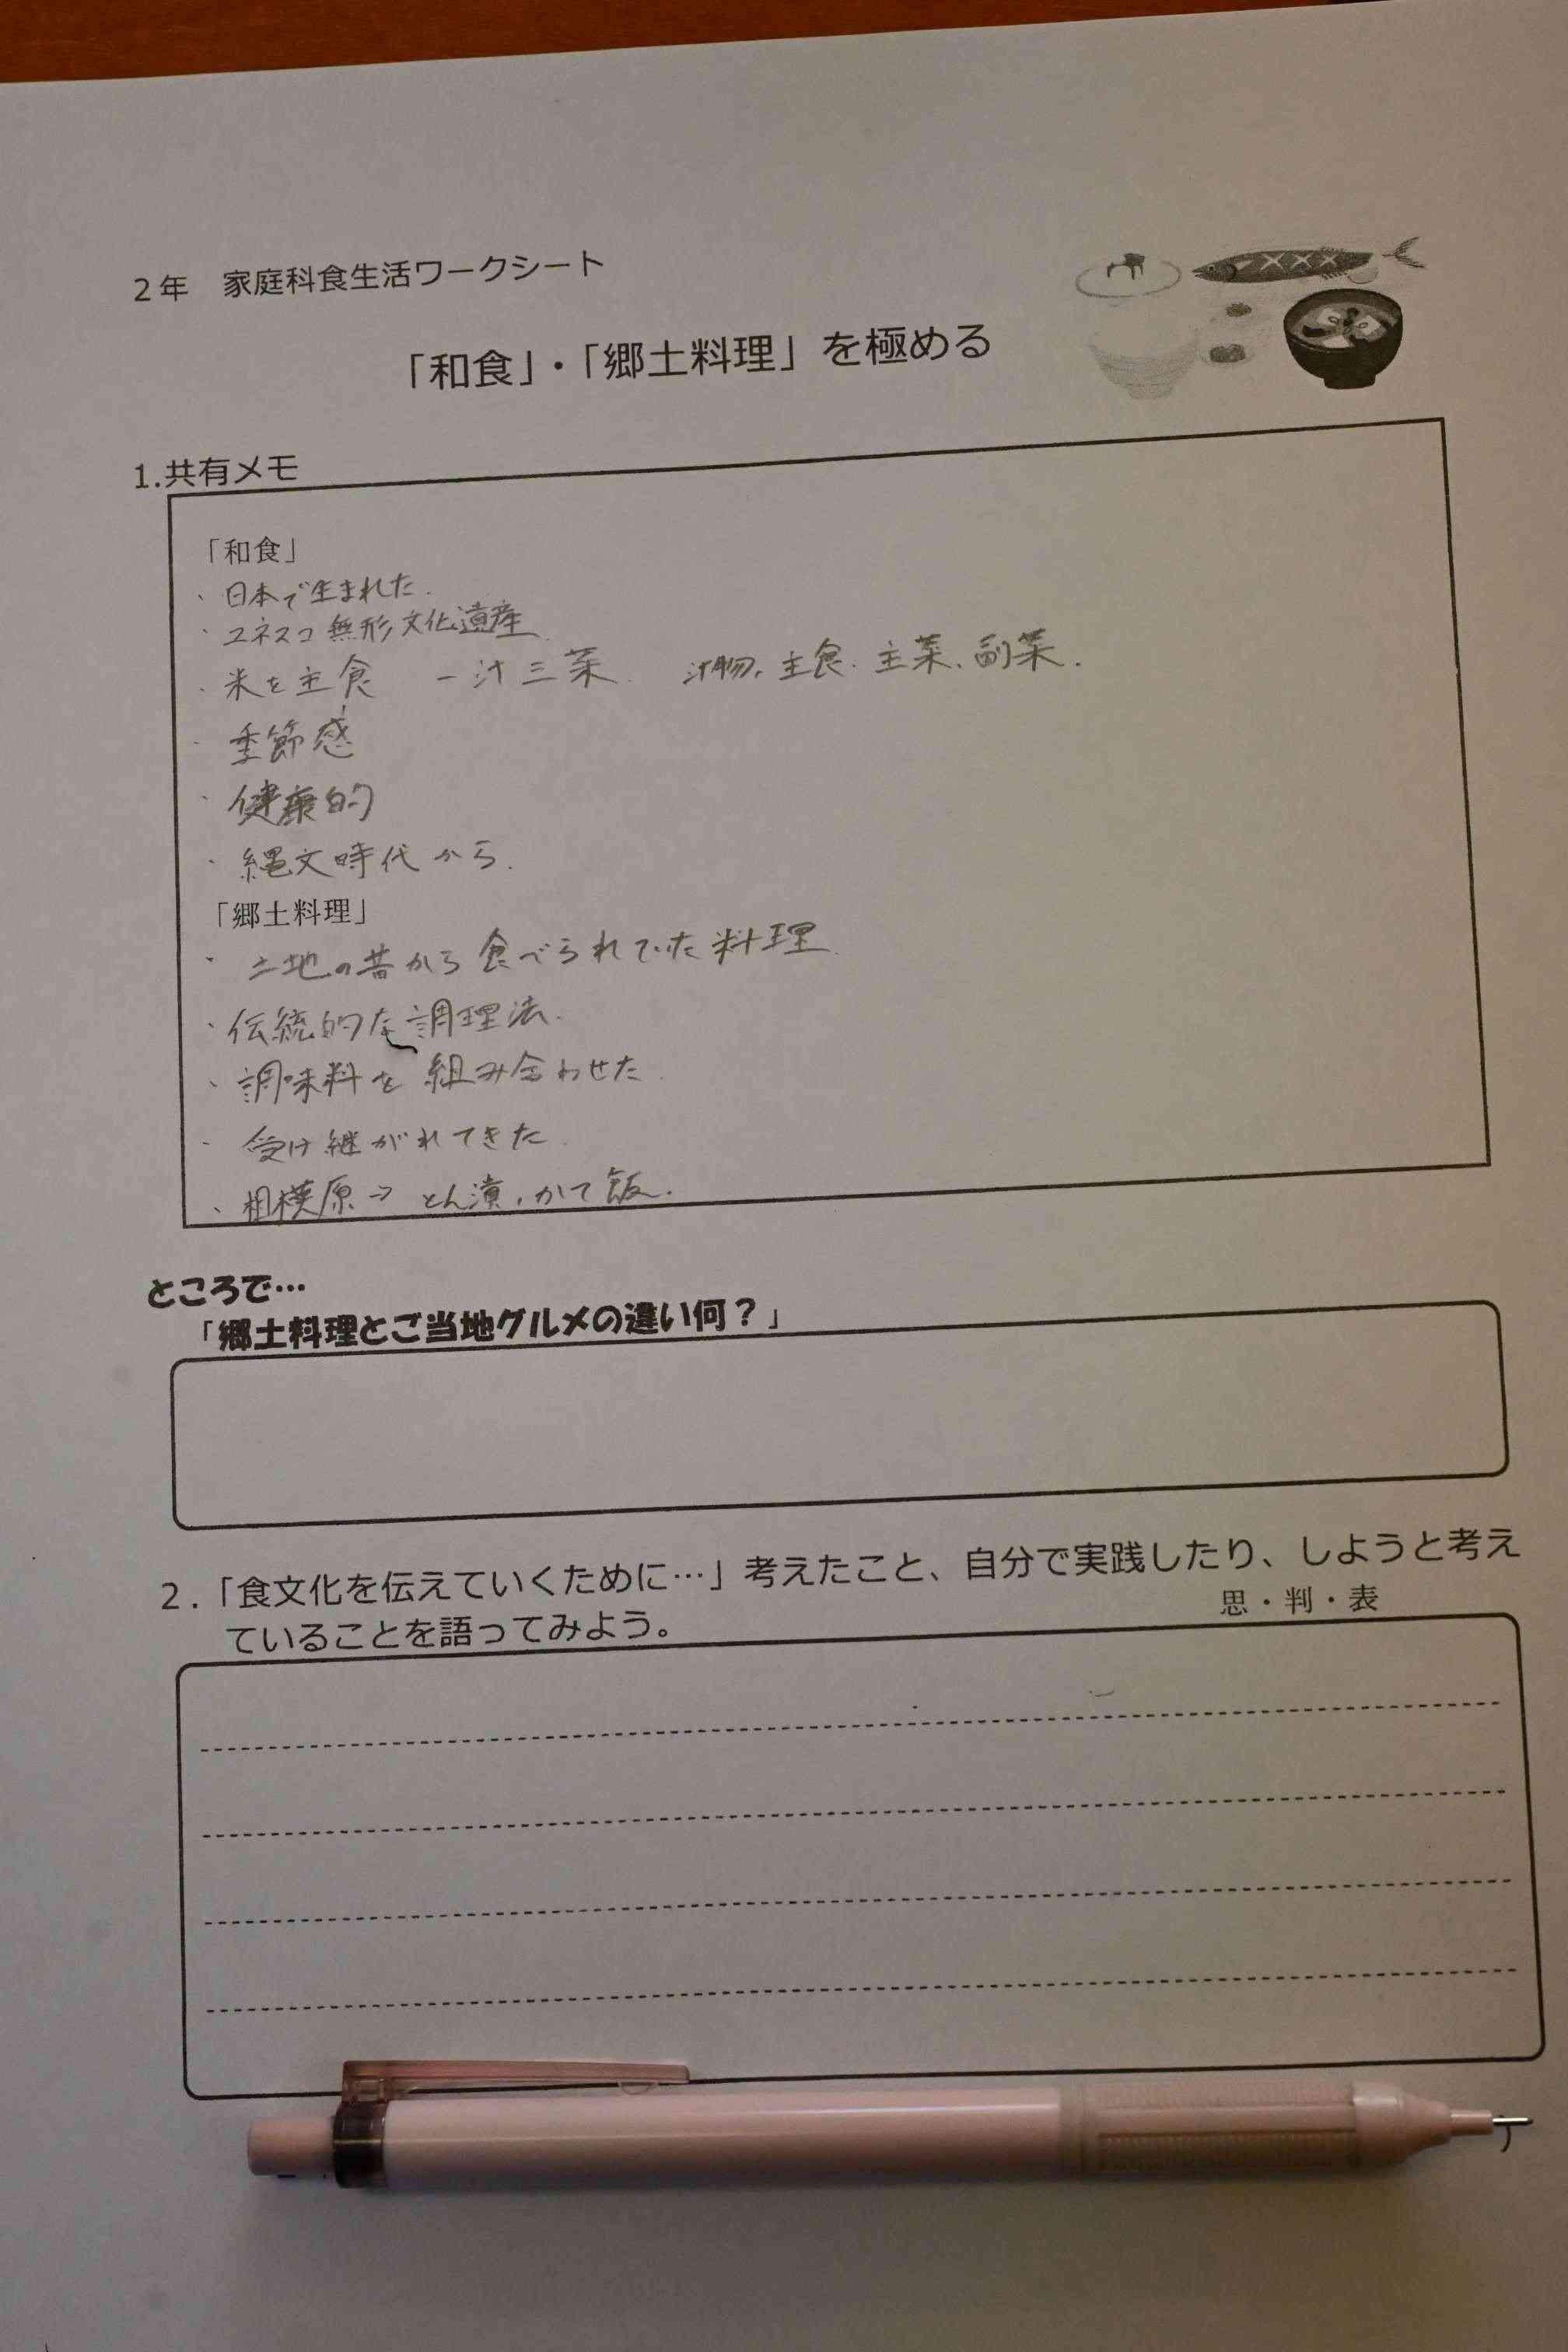 2年　家庭科食生活ワークシート
「和食」・「郷土料理」を極める
1.共有メモ
「和食」
・日本で生まれた.
・ユネスコ無形文化遺産.
・米を主食　一汁三菜.　汁物,主食.主菜、副菜.
・季節感
・健康的
・縄文時代から.
「郷土料理」
・土地の昔から食べられていた料理.
・伝統的な調理法.
・調味料を組み合わせた.
・受け継がれてきた.
・相模原→とん漬,かて飯.
ところで…
「郷土料理とご当地グルメの違い何？」
2.「食文化を伝えていくために…」考えたこと、自分で実践したり、しようと考え
ていることを語ってみよう。
思・判・表